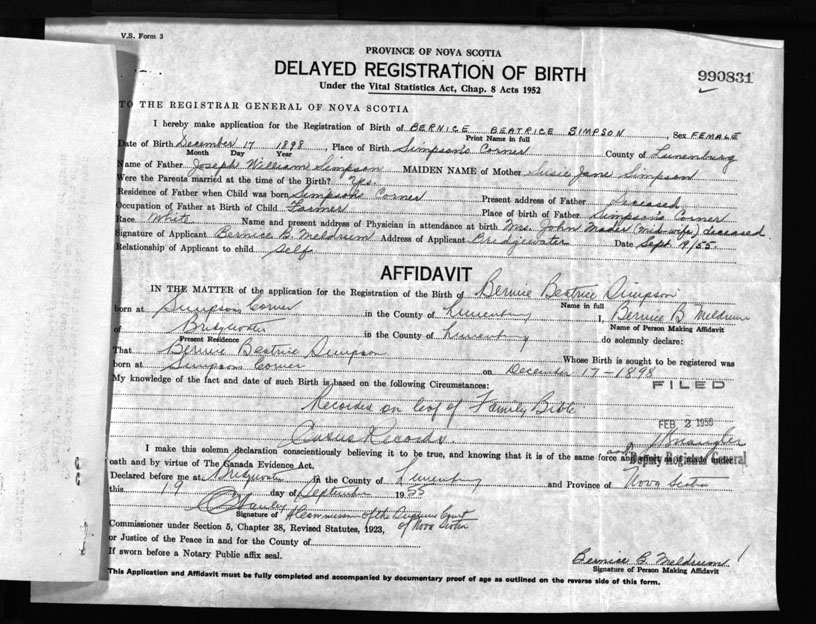 V.S. Form 3
PROVINCE OF NOVA SCOTIA
DELAYED REGISTRATION OF BIRTH
990831
Under the Vital Statistics Act, Chap. 8 Acts 1952
TO THE REGISTRAR GENERAL OF NOVA SCOTIA
I hereby make application for the Registration of Birth of BERNICE BEATRICE SIMPSON, Sex FEMALE
Print Name in full
Date of Birth December 17 1898, Place of Birth Simpson's Corner County of Lunenburg
Month Day Year
Name of Father Joseph William Simpson MAIDEN NAME of Mother Susie Jane Simpson
Were the Parents married at the time of the Birth? Yes.
Residence of Father when Child was born Simpson's Corner Present address of Father Deceased
Occupation of Father at Birth of Child Farmer Place of birth of Father Simpson's Corner
Race White Name and present address of Physician in attendance at birth Mrs. John Mader (mid-wife) deceased
Signature of Applicant Bernice B. Meldrum Address of Applicant Bridgewater Date Sept. 19/55.
Relationship of Applicant to child Self.
AFFIDAVIT
IN THE MATTER of the application for the Registration of the Birth of Bernice Beatrice Simpson
Name in full
born at Simpsons Corner in the County of Lunenburg I, Bernice B Meldrum
Name of Person Making Affidavit
of Bridgewater in the County of Lunenburg do solemnly declare:
Present Residence
That Bernice Beatrice Simpson Whose Birth is sought to be registered was
born at Simpsons Corner on December 17-1898
My knowledge of the fact and date of such Birth is based on the following Circumstances:
FILED
Records on leaf of Family Bible
FEB 2 1956
Census Records.
I make this solemn declaration conscientiously believing it to be true, and knowing that it is of the same force and
Deputy Registrar General
oath and by virtue of The Canada Evidence Act.
Declared before me at Bridgewater in the County of Lunenburg and Province of Nova Scotia
this 19 day of September 1955
Signature of A Commissioner of the Supreme Court
of Nova Scotia
Commissioner under Section 5, Chapter 38, Revised Statutes, 1923,
or Justice of the Peace in and for the County of
If sworn before a Notary Public affix seal.
Bernice B. Meldrum
Signature of Person Making Affidavit
This Application and Affidavit must be fully completed and accompanied by documentary proof of age as outlined on the reverse side of this form.